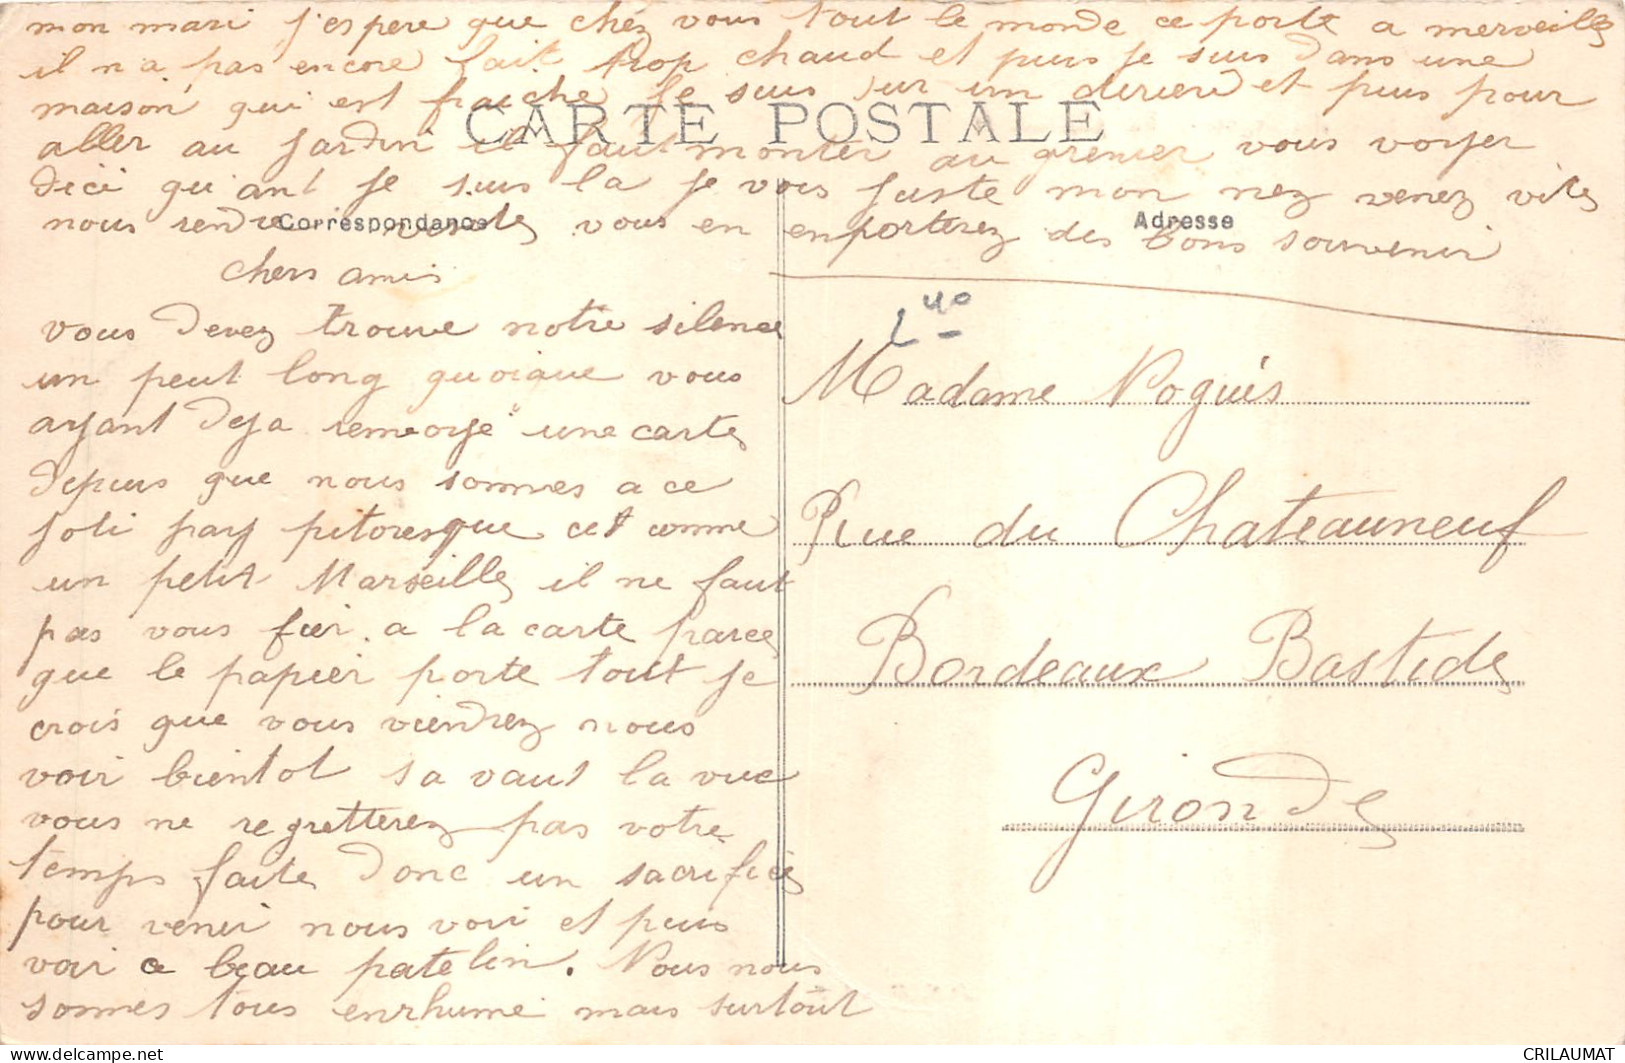 mon mari j'espere que chéz vous tout le monde ce porte a merveille
il n'a pas encore fait trop chaud et puis je suis dans une
maison qui est fraiche je suis sur un derierd et puis pour
CARTE POSTALE
aller au jardin il faut monter au grenier vous voyer
dici qu'ant je suis la je vois juste mon nez venez vite
nous rendre visite vous en emporterez des bons souvenir
Correspondance
Adresse
chers amis
vous devez trouve notre silence
un peut long quoique vous
ayant deja renvoye une carte
depuis que nous sommes a ce
joli pay pitoresque cet comme
un petit Marseille il ne faut
pas vous fier a la carte parce
que le papier porte tout je
crois que vous viendrez nous
voir bientot sa vaut la vue
vous ne regretterez pas votre
temps faite donc un sacrifice
pour venir nous voir et puis
voir ce beau patelin. Nous nous
sommes tous enrhume mais surtout
Madame Noguès
Rue du Chateauneuf
Bordeaux Bastide
Gironde
CRILAUMAT
www.delcampe.net